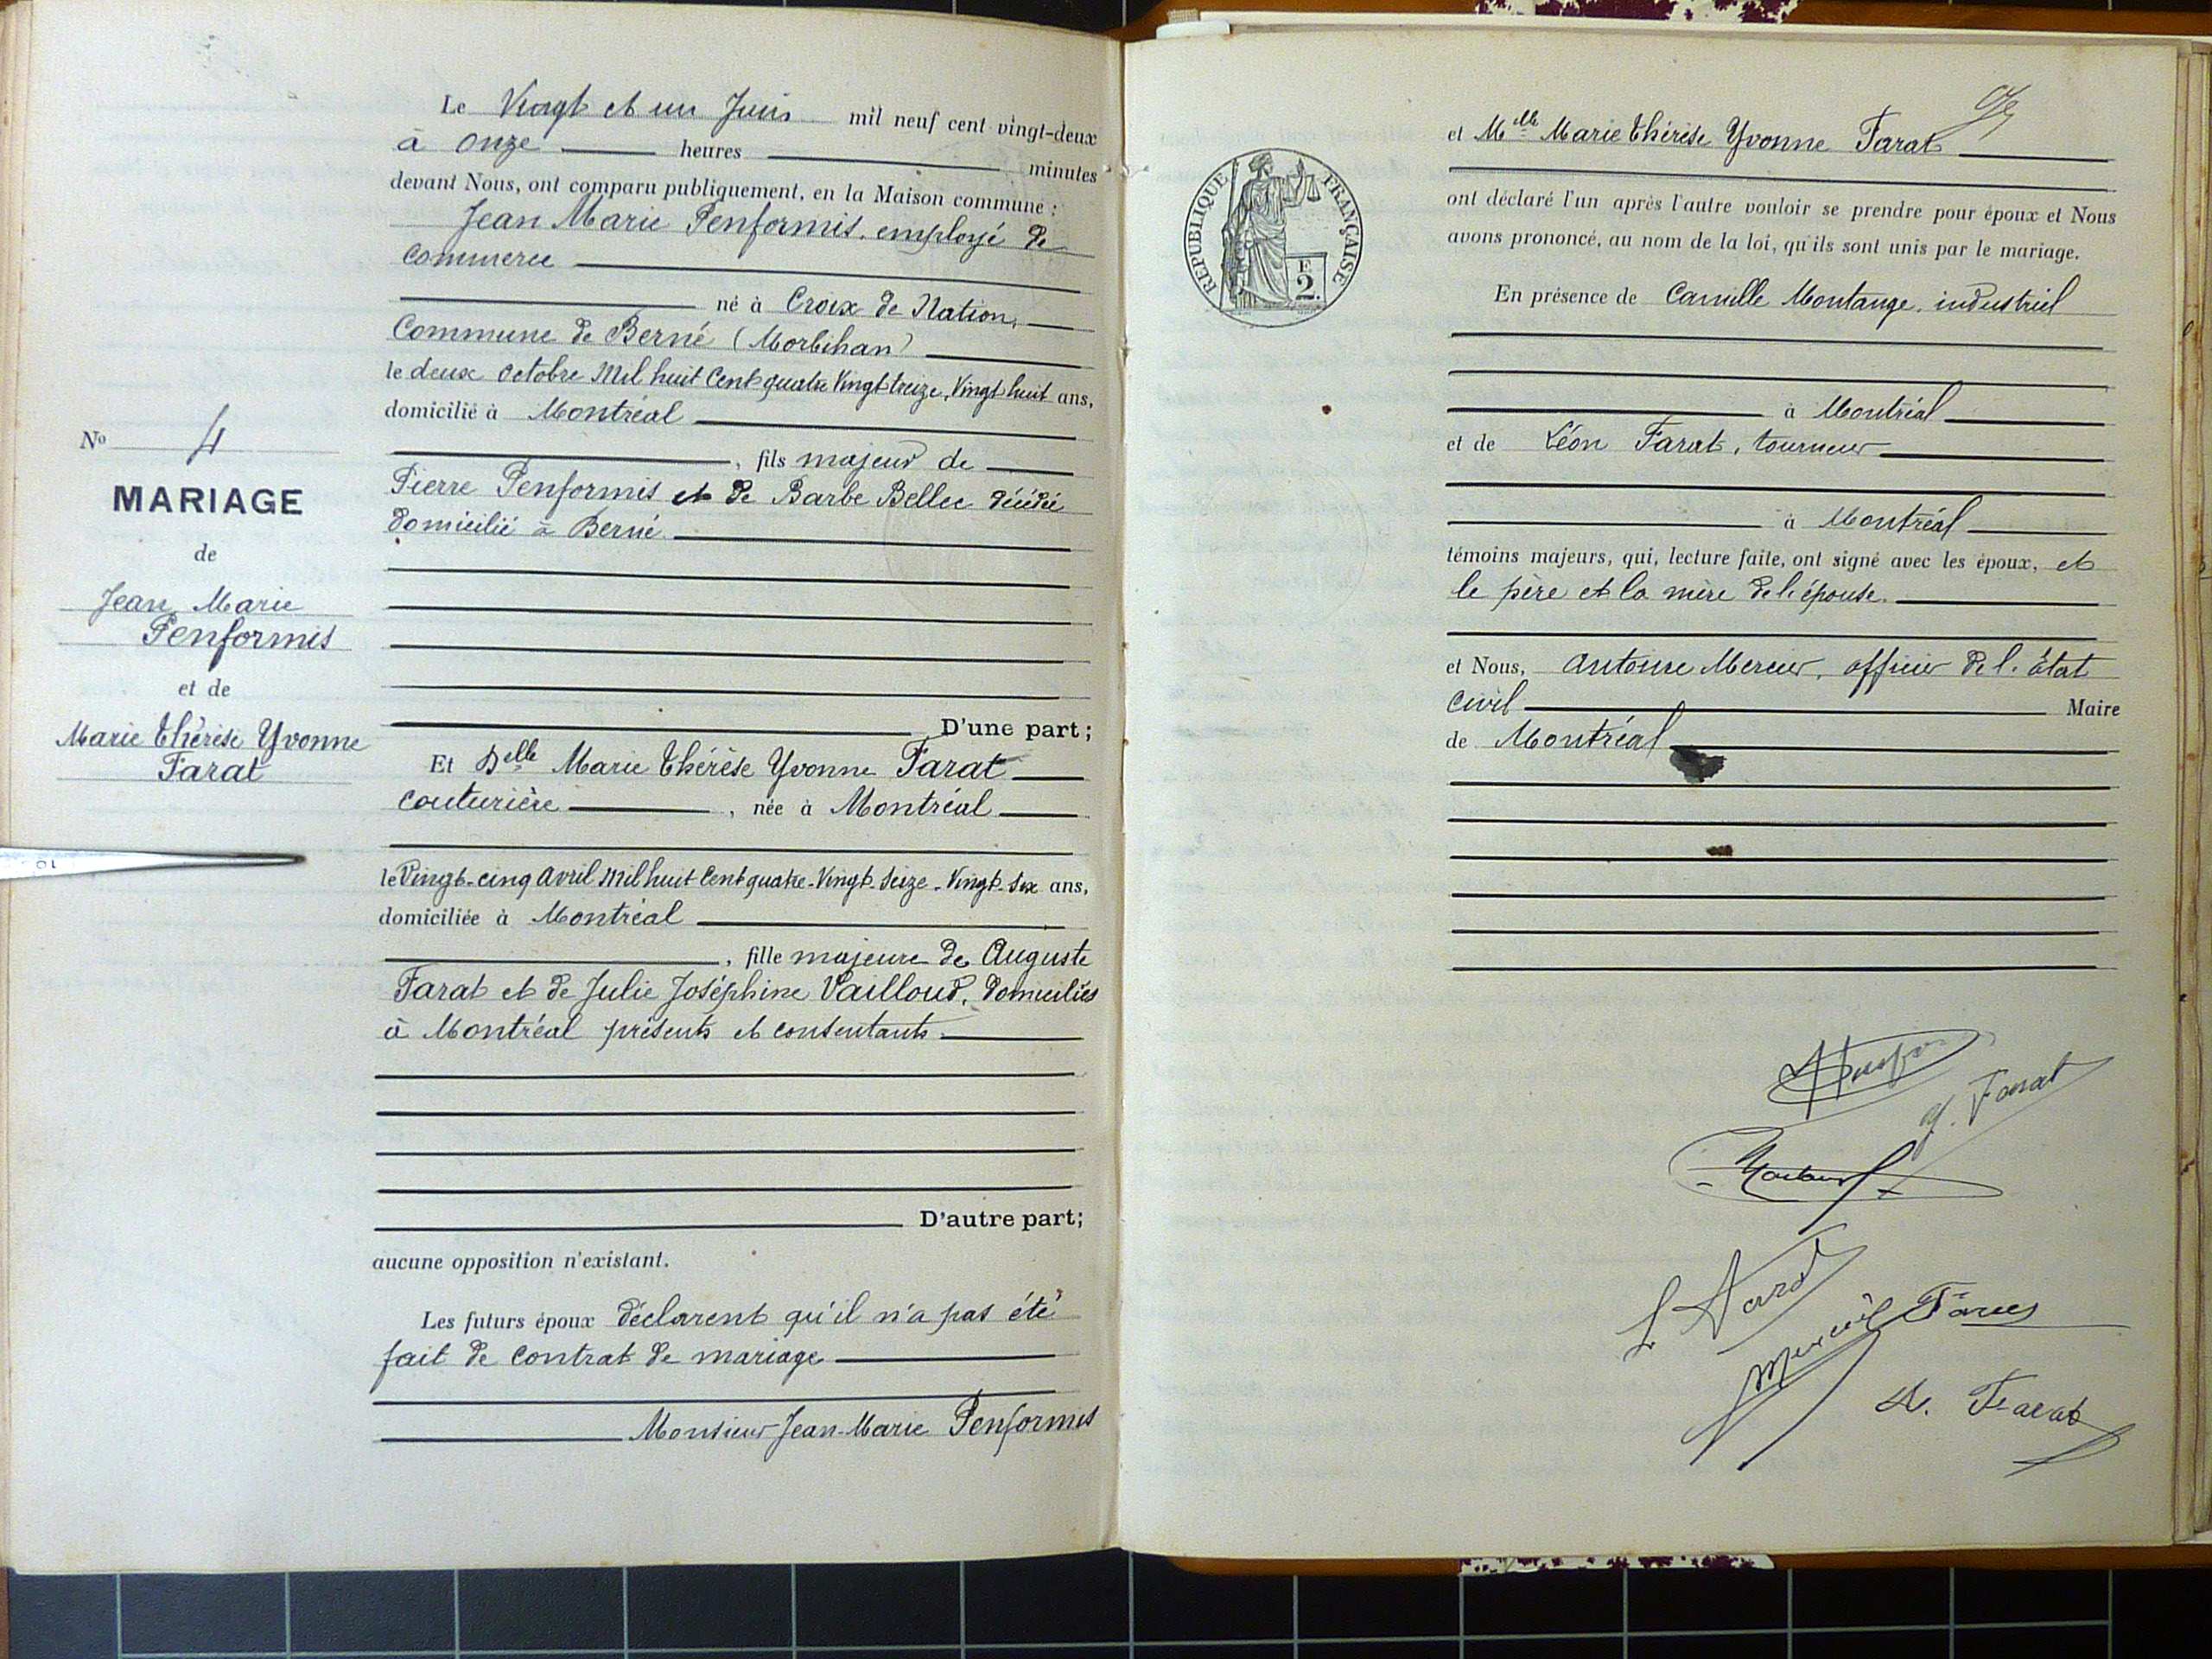 Le Vingt et un Juin mil neuf cent vingt-deux
à onze heures minutes
devant Nous, ont comparu publiquement, en la Maison commune :
Jean Marie Penformis, employé de
commerce
né à Croix de Nation,
Commune de Berné (Morbihan)
le deux Octobre Mil huit Cent quatre Vingt treize, Vingt huit ans,
domicilié à Montréal
, fils majeur de
Pierre Penformis et de Barbe Bellec décédée
domicilié à Berné.
D'une part ;
Et Delle Marie Thérèse Yvonne Farat
couturière , née à Montréal
le Vingt-cinq Avril Mil huit Cent quatre-Vingt-Seize - Vingt-Six ans,
domiciliée à Montréal
, fille majeure de Auguste
Farat et de Julie Joséphine Vailloud, domiciliés
à Montréal présents et consentants.
D'autre part ;
aucune opposition n'existant.
Les futurs époux déclarent qu'il n'a pas été
fait de contrat de mariage
Monsieur Jean-Marie Penformis
No 4
MARIAGE
de
Jean Marie
Penformis
et de
Marie Thérèse Yvonne
Farat
10
et Melle Marie Thérèse Yvonne Farat
ont déclaré l'un après l'autre vouloir se prendre pour époux et Nous
avons prononcé, au nom de la loi, qu'ils sont unis par le mariage.
En présence de Camille Montange, industriel
à Montréal
et de Léon Farat, tourneur
à Montréal
témoins majeurs, qui, lecture faite, ont signé avec les époux, et
le père et la mère de l'épouse.
et Nous, Antoine Mercier, officier de l'État
Civil Maire
de Montréal
RÉPUBLIQUE FRANÇAISE
F
2.
Y. Farat
A. Farat